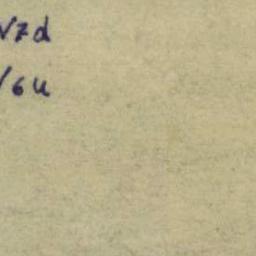 √7d
/6u